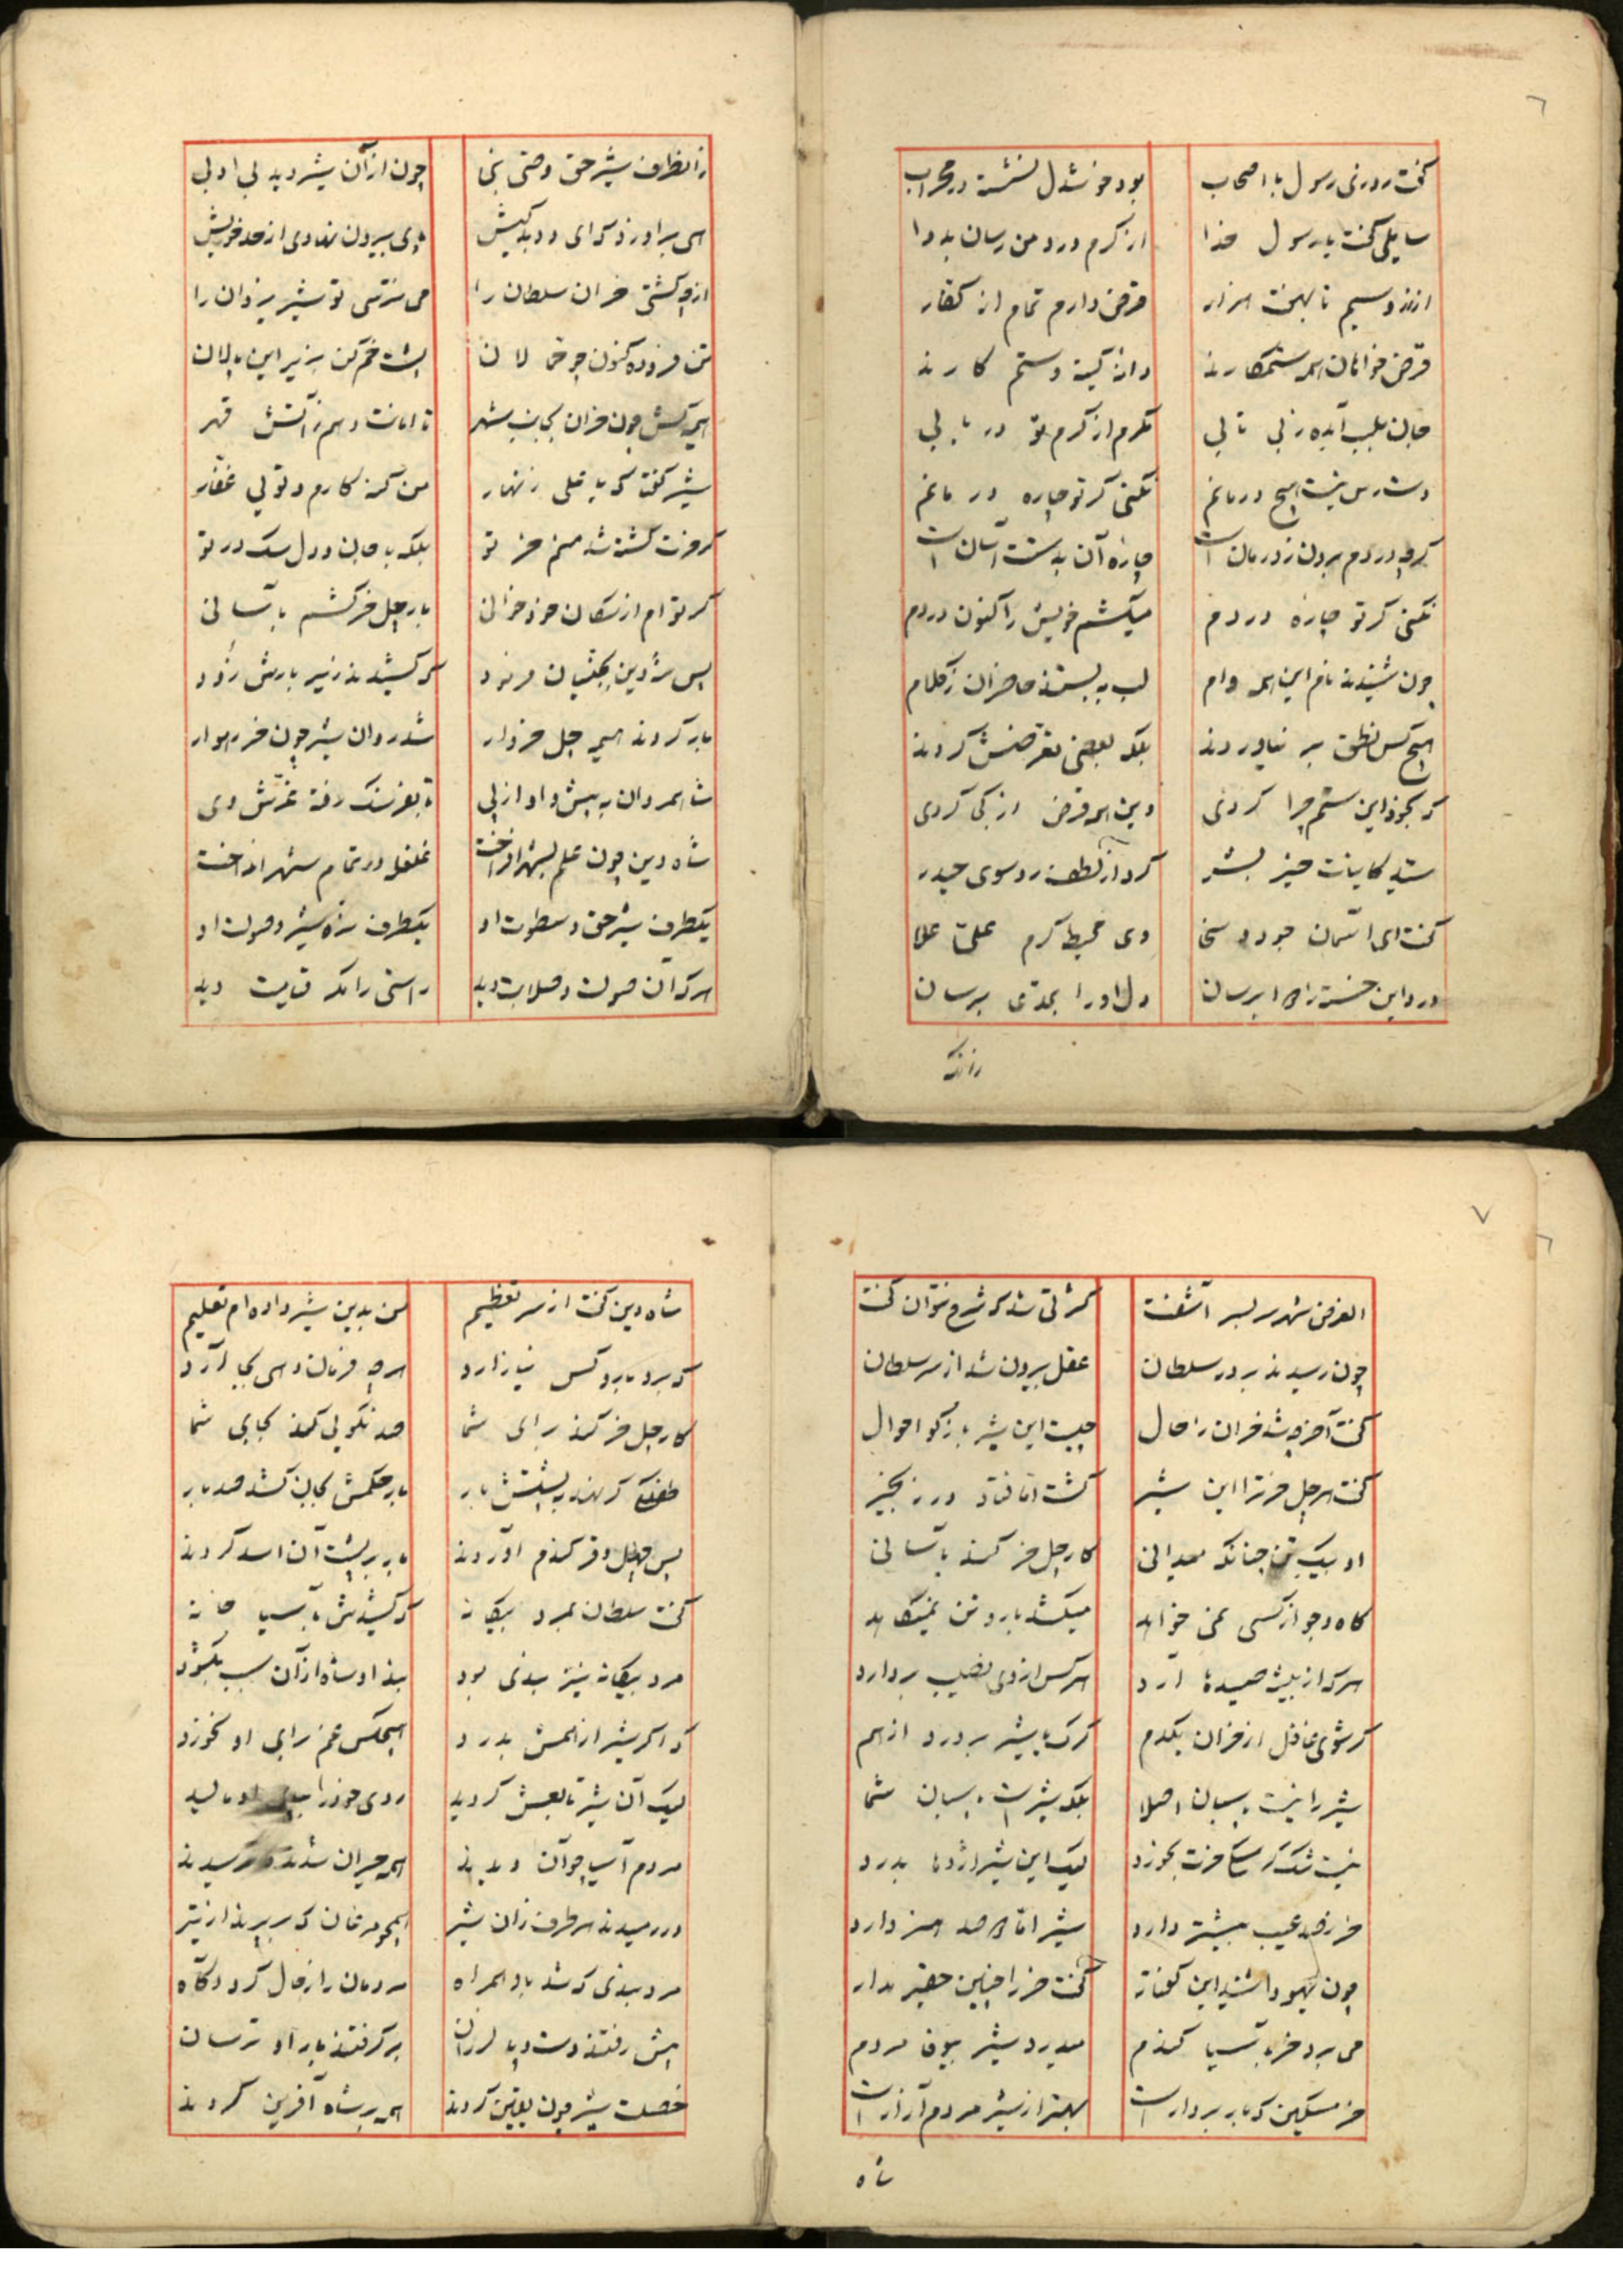 ٦
گفت روزی رسول با اصحاب بود خوشدل نشسته در محراب
سایلی گفت یا رسول خدا از کرم درد من رسان بدوا
از زر و سیم تا بهفت هزار قرض دارم تمام از کفار
قرض خواهان همه ستمکارند دانه کینه و ستم کارند
جان بلب آمده ز بی تابی مگرم از کرم تو دریابی
دست رس نیست هیچ درمانم نکنی گر تو چاره در مانم
گرچه دردم برون ز درمان است چاره آن بدستت آسان است
نکنی گر تو چاره دردم میکشم خویش را کنون دردم
چون شنیدند نام این همه وام لب ببستند حاضران ز کلام
هیچ کس نطق بر نیاوردند بلکه بعضی تعرضش کردند
که بخود این ستم چرا کردی وین همه قرض از کی کردی
سید کاینات خیر بشر کرد از لطف رو سوی حیدر
گفت ای آسمان جود و سخا وی محیط کرم علی علا
درد این خسته را دوا برسان دل او را بمدعی برسان
زانکه
زانطرف شیر حق وصی نبی چون از آن شیر دید بی ادبی
بر آورد که ای بدکیش پای بیرون نهادی از حد خویش
از چه کشتی خران سلطان را می نترسی تو شیر یزدان را
تن فروده کنون چو حمالان پشت خم کن بزیر این پالان
همه کش چون خران بجانب شهر تا امانت دهم ز آتش قهر
شیر گفت که یا علی زنهار من گنه کارم و تویی غفار
گر خرت کشته شد منم خر تو بلکه با جان و دل سگ در تو
گر توام از سگان خود خوانی بار چل خر کشم بآسانی
پس شه دین بجنیان فرمود که کشیدند زیر بارش زود
بار کردند همه چل خروار شد روان شیر چون خر رهوار
شاه مردان به پیش و او از پی تا بفرسنگ رفته غرش وی
شاه دین چون علم بشهر افراخت غلغله در تمام شهر انداخت
یکطرف شیر حق و سطوت او یکطرف نره شیر و صولت او
هر که آن صولت و صلابت دید راستی را مگر قیامت دید
٧
الغرض شهر سر بسر آشفت گر شی شد که شرح نتوان گفت
چون رسیدند بر در سلطان عقل بیرون شد از سر سلطان
گفت آخر چه شد خران را حال چیست این شیر بازگو احوال
گفت هر چل خر ترا این شیر کشت اما فتاد در زنجیر
او بیک تن چنانکه میدانی کار چل خر کند بآسانی
کاه و جو از کسی نمی خواهد میکشد بار و تن نمیکاهد
هر که از بیشه صیدها آرد هر کس از وی نصیب بردارد
گر شوی غافل از خران یکدم گرگ یا شیر بردرد از هم
شیر را نیست پاسبان اصلا بلکه شیر است پاسبان شما
نیست شک کر سگ خرت بخورد لیک این شیر اژدها بدرد
خر ز صد عیب بیشتر دارد شیر اما دو صد هنر دارد
چون یهود اشنید این گفتار گفت خر را چنین حقیر مدار
می برد خر بآسیا گندم میدرد شیر بیوفا مردم
خر مسکین که بار بردار است بهتر از شیر مردم آزار است
شاه
شاه دین گفت از سر تعظیم من بدین شیر داده ام تعلیم
که برد بار و کس نیازارد هر چه فرمان دهی بجا آرد
کار چل خر کند برای شما صد نکویی کند بجای شما
طفلکی گر نهد به پشتش بار بار حکمش بجان کشد صد بار
پس چهل وقر گندم آوردند بار بر پشت آن اسد کردند
گفت سلطان بمرد بیگانه که کشیدش بآسیا خانه
مرد بیگانه نیز بیدی بود بند او شاه از آن سبب بگشود
که اگر شیر از همش بدرد هیچکس غم برای او نخورد
لیک آن شیر تابعش گردید روی خود را بپای او مالید
مردم آسیا چو آن دیدند همه حیران شدند و ترسیدند
در رمیدند هر طرف زان شیر همچو مرغان که بر پرند از تیر
مرد بیدی که شد باو همراه مردمان را ز حال کرد آگاه
پیش رفتند دست و پا لرزان بر گرفتند بار او ترسان
خصلت شیر چون یقین کردند همه بر شاه آفرین کردند